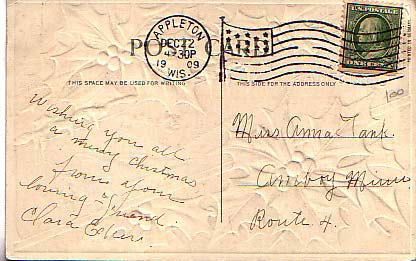 APPLETON
DEC 22
4-30P
1909
WIS.
U.S. POSTAGE
POST CARD
THIS SPACE MAY BE USED FOR WRITING
THIS SIDE FOR THE ADDRESS ONLY
Wishing you all
a merry christmas
from your
loving friend.
Clara
Miss Anna Tank
Amboy Minn
Route 4.
100